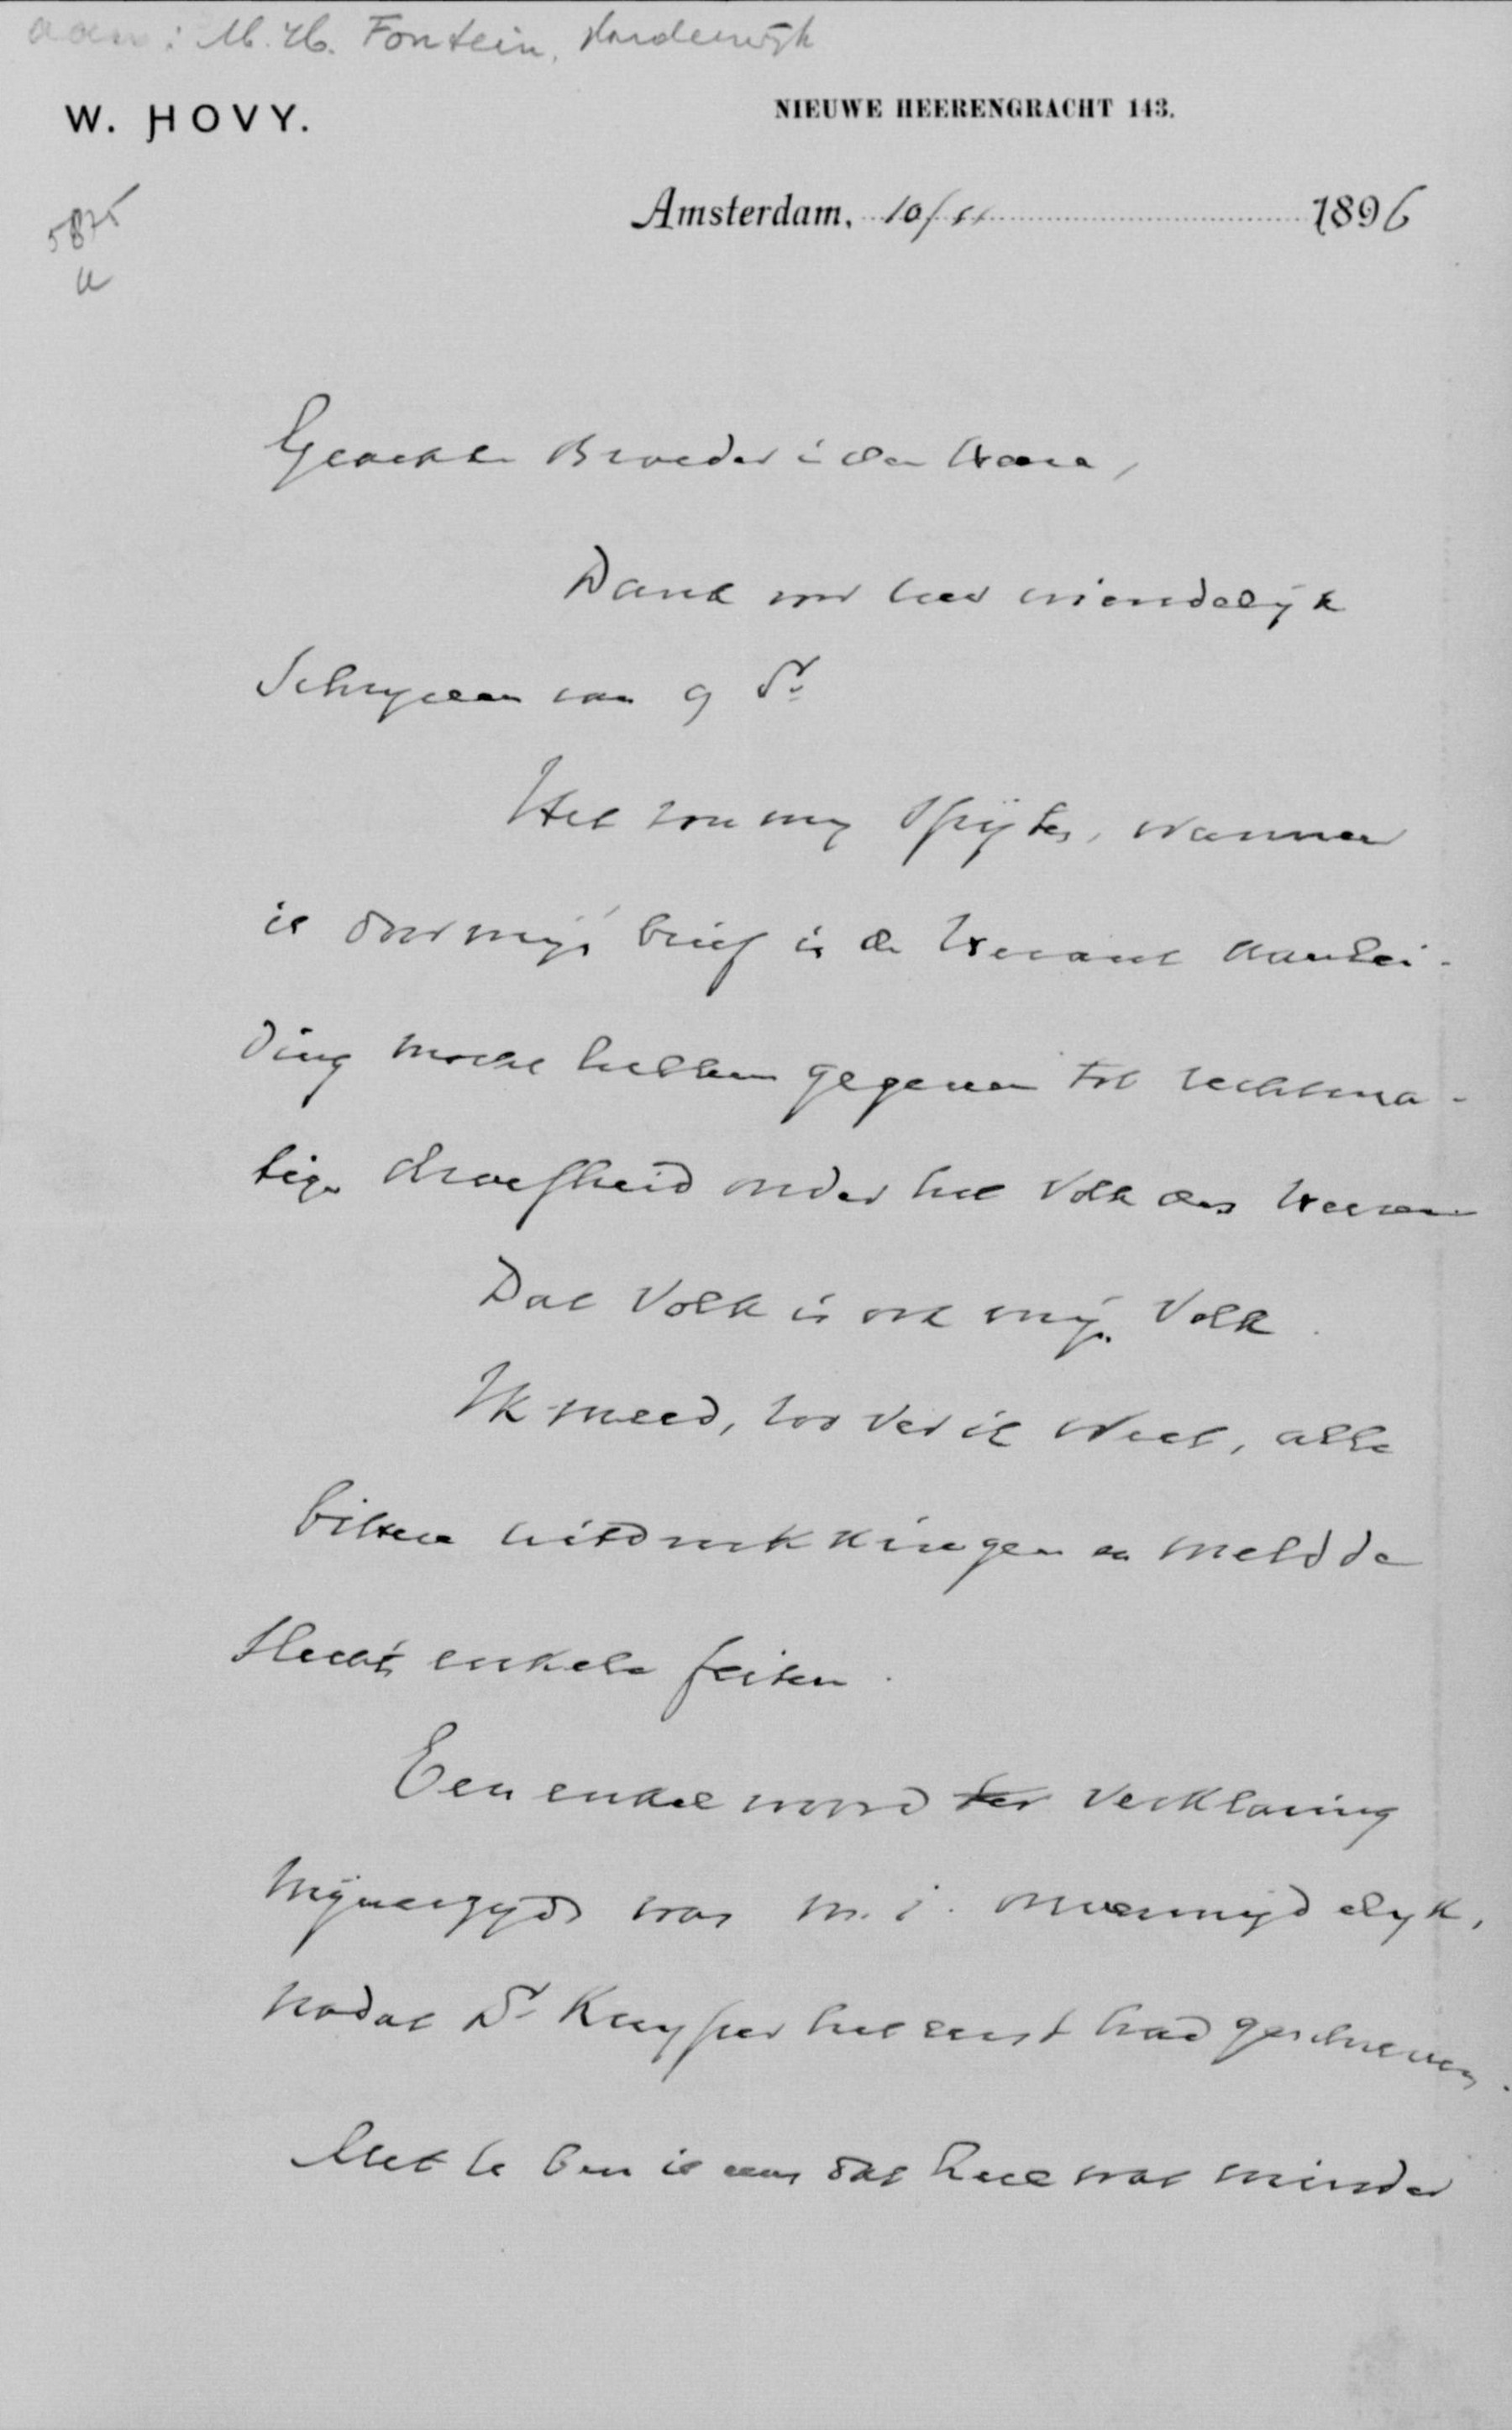 aan: M. H. Fontein, Harderwijk
W. HOVY.
NIEUWE HEERENGRACHT 143.
Amsterdam, 10/11 1896
5875
a
Geachte Broeder in den Heere,
Dank voor het vriendelijk
Schrijven van 9 Dr.
Het zou mij spijten, wanneer
ik door mijn brief in de Heraut aanlei-
ding mocht hebben gegeven tot rechtma-
tige droefheid onder het Volk des Heeren
Dat Volk is ook mijn Volk.
Ik meed, zoo ver ik weet, alle
bittere uitdrukkingen en meldde
slechts enkele feiten.
Een enkel woord ter verklaring
Mijnerzijds was m. i. onvermijdelijk,
nadat Dr. Kuyper het eerst had geschreven.
Met U ben ik eens dat heel wat minder